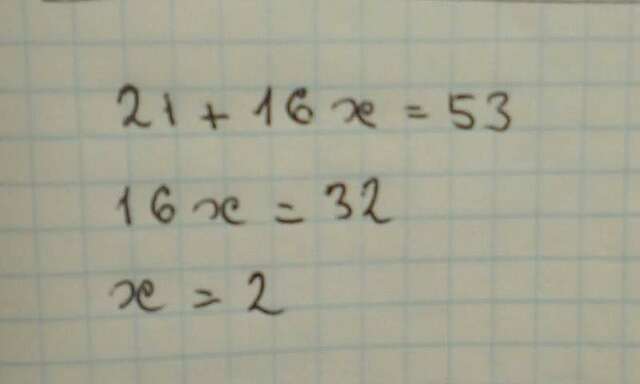 21 + 16x = 53
16x = 32
x = 2